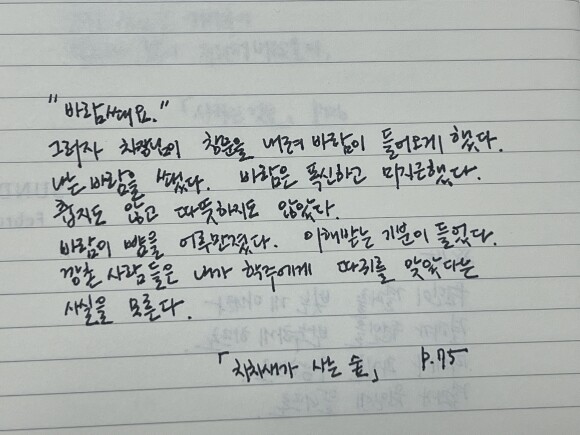 "바람쐐요."
그러자 차장님이 창문을 내려 바람이 들어오게 했다.
나는 바람을 쐤다. 바람은 푹신하고 미지근했다.
춥지도 않고 따뜻하지도 않았다.
바람이 뺨을 어루만졌다. 이해받는 기분이 들었다.
깡촌 사람들은 내가 학주에게 따귀를 맞았다는
사실을 모른다.
「치치새가 사는 숲」 p.75